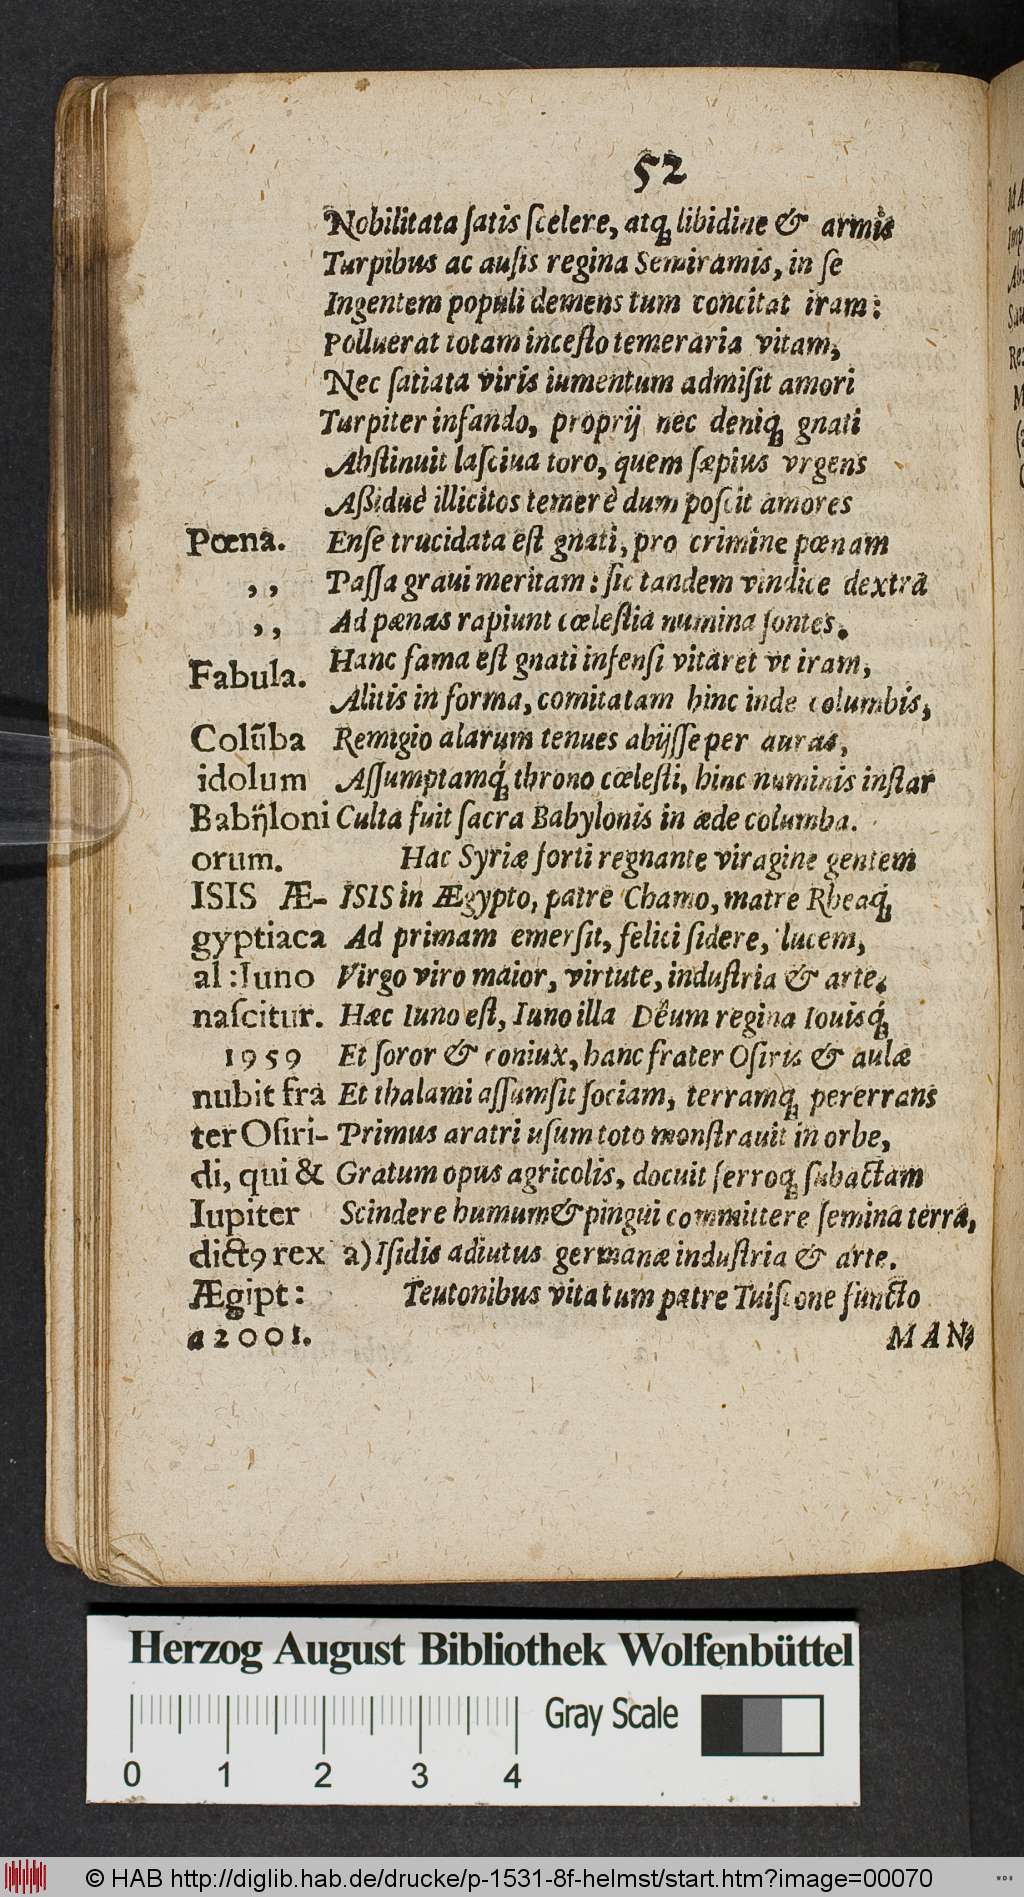 52
Nobilitata ſatis ſcelere, atq; libidine & armis
Turpibus ac auſis regina Semiramis, in ſe
Ingentem populi demens tum concitat iram:
Polluerat totam inceſto temeraria vitam,
Nec ſatiata viris iumentum admiſit amori
Turpiter infando, proprij nec deniq; gnati
Abſtinuit laſciua toro, quem ſæpius vrgens
Aßiduè illicitos temerè dum poſcit amores
Pœna. Enſe trucidata eſt gnati, pro crimine pœnam
,, Paſſa graui meritam: ſic tandem vindice dextra
,, Ad pænas rapiunt cœleſtia numina ſontes.
Fabula. Hanc fama eſt gnati infenſi vitaret vt iram,
Alitis in forma, comitatam hinc inde columbis,
Colũba Remigio alarum tenues abijſſe per auras,
idolum Aſſumptamq́; throno cœleſti, hinc numinis inſtar
Babÿloni Culta fuit ſacra Babylonis in æde columba.
orum. Hac Syriæ forti regnante viragine gentem
ISIS Æ- ISIS in Ægypto, patre Chamo, matre Rheaq́;
gyptiaca Ad primam emerſit, felici ſidere, lucem,
al: Iuno Virgo viro maior, virtute, induſtria & arte.
naſcitur. Hæc Iuno eſt, Iuno illa Deûm regina Iouisq́;
1959 Et ſoror & coniux, hanc frater Oſiris & aulæ
nubit fra Et thalami aſſumſit ſociam, terramq; pererrans
ter Oſiri- Primus aratri uſum toto monſtrauit in orbe,
di, qui & Gratum opus agricolis, docuit ferroq; ſubactam
Iupiter Scindere humum & pingui committere ſemina terra,
dictꝰ rex a) Iſidis adiutus germanæ induſtria & arte.
Ægipt: Teutonibus vita tum patre Tuiſcone functo
a 2001. MAN-
Herzog August Bibliothek Wolfenbüttel
Gray Scale
0 1 2 3 4
© HAB http://diglib.hab.de/drucke/p-1531-8f-helmst/start.htm?image=00070